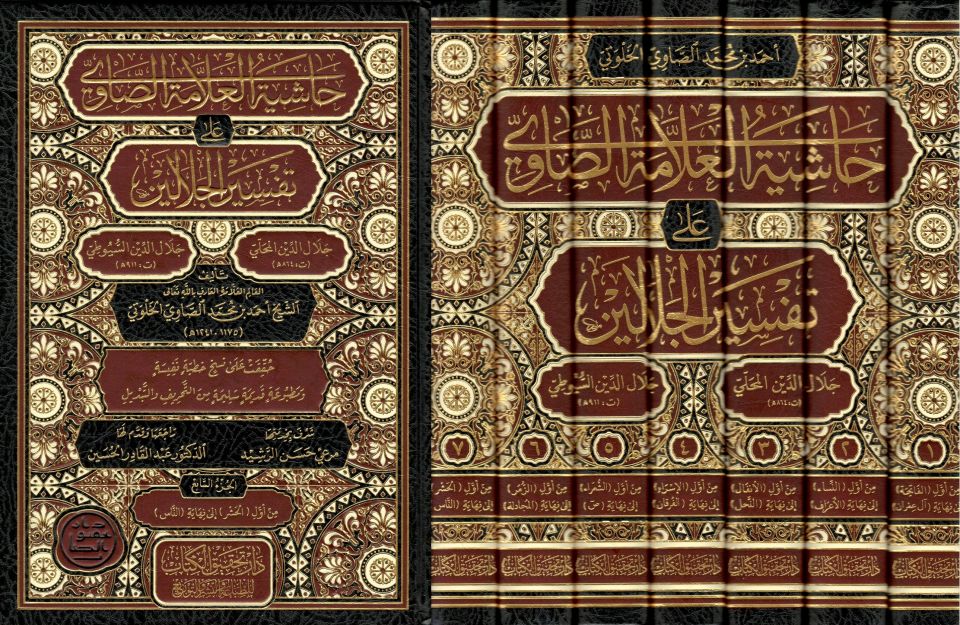 حاشية العلامة الصاوي
على
تفسير الجلالين
جلال الدين المحلي
(ت: ٨٦٤ه)
جلال الدين السيوطي
(ت: ٩١١ه)
تأليف
العالم العلامة العارف بالله تعالى
الشيخ أحمد بن محمد الصاوي الخلوتي
(١١٧٥-١٢٤١ه)
حققت على نسخ خطية نفيسة
ومطبوعة قديمة سليمة من التحريف والتبديل
مرعي حسن الرشيد
راجعها وقدم لها
الدكتور عبد القادر الحسين
الجزء السابع
من أول (الحشر) إلى نهاية (الناس)
دار تحقيق الكتاب
للطباعة والنشر والتوزيع
أحمد بن محمد الصاوي الخلوتي
حاشية العلامة الصاوي
على
تفسير الجلالين
جلال الدين المحلي
(ت: ٨٦٤ه)
جلال الدين السيوطي
(ت: ٩١١ه)
١ ٢ ٣ ٤ ٥ ٦ ٧
من أول (الفاتحة)
إلى نهاية (آل عمران)
من أول (النساء)
إلى نهاية (الأعراف)
من أول (الأنفال)
إلى نهاية (النحل)
من أول (الإسراء)
إلى نهاية (الفرقان)
من أول (الشعراء)
إلى نهاية (ص)
من أول (الزمر)
إلى نهاية (المجادلة)
من أول (الحشر)
إلى نهاية (الناس)
دار تحقيق الكتاب
دار تحقيق الكتاب
دار تحقيق الكتاب
دار تحقيق الكتاب
دار تحقيق الكتاب
دار تحقيق الكتاب
دار تحقيق الكتاب